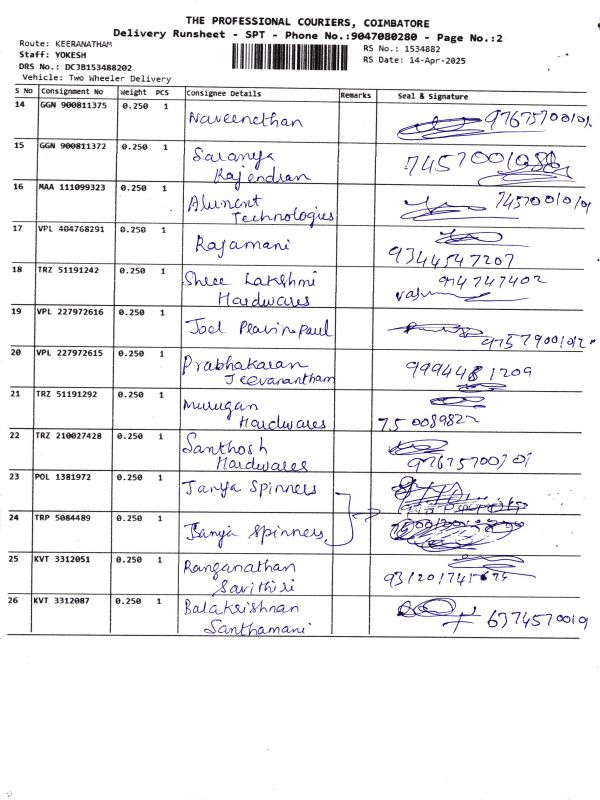 THE PROFESSIONAL COURIERS, COIMBATORE
Delivery Runsheet - SPT - Phone No.:9047080280 - Page No.:2
Route: KEERANATHAM
RS No.: 1534882
Staff: YOKESH
RS Date: 14-Apr-2025
DRS No.: DCJB153488202
Vehicle: Two Wheeler Delivery
S No Consignment No Weight PCS Consignee Details Remarks Seal & Signature
14 GGN 900811375 0.250 1 Naveenethan
15 GGN 900811372 0.250 1 Saranya
Rajendran
16 MAA 111099323 0.250 1 Alument
Technologies
17 VPL 404768291 0.250 1 Rajamani
9344547207
18 TRZ 51191242 0.250 1 Shree Lakshmi
Hardwares
19 VPL 227972616 0.250 1 Joel Pravinpaul
20 VPL 227972615 0.250 1 Prabhakaran
Jeevanantham
21 TRZ 51191292 0.250 1 Murugan
Hardwares
22 TRZ 210027428 0.250 1 Santhosh
Hardwares
23 POL 1381972 0.250 1 Tanya Spinners
24 TRP 5084489 0.250 1 Tanya Spinners
25 KVT 3312051 0.250 1 Ranganathan
Savithiri
26 KVT 3312087 0.250 1 Balakrishnan
Santhamani